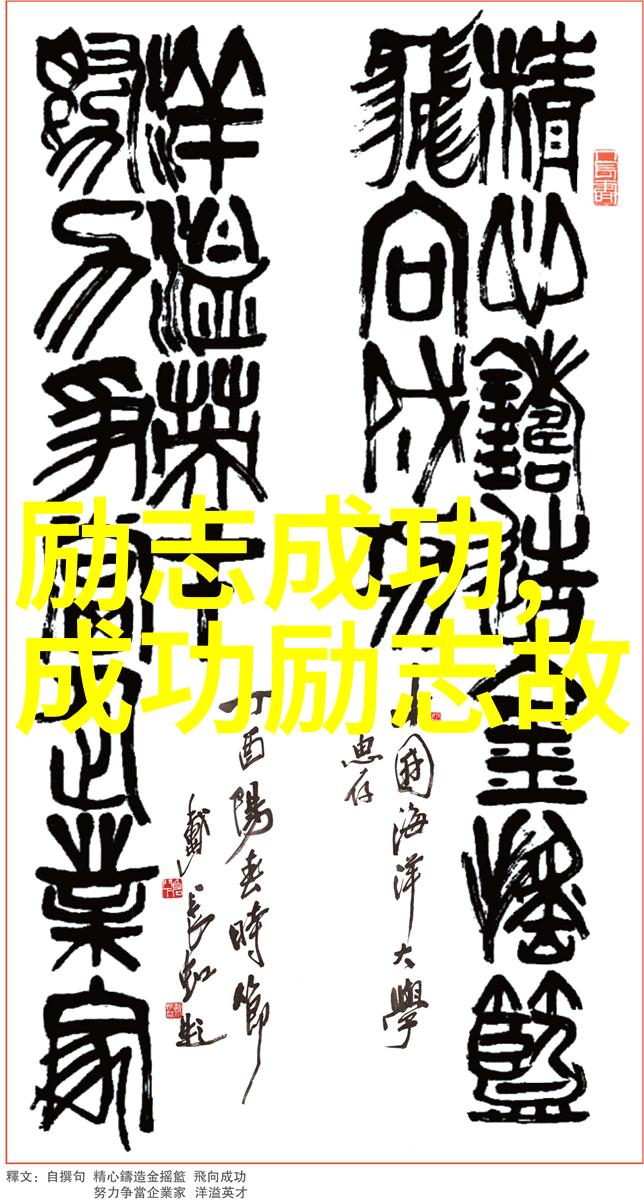 精心鑄造金摇籃
飛向成功
中國海洋大學
惠存
洋溢英才
丁酉陽春時節
戴長虹題
努力争當企業家
励志成功,
成功励志故
釋文：自撰句 精心鑄造金摇籃 飛向成功
努力争當企業家 洋溢英才